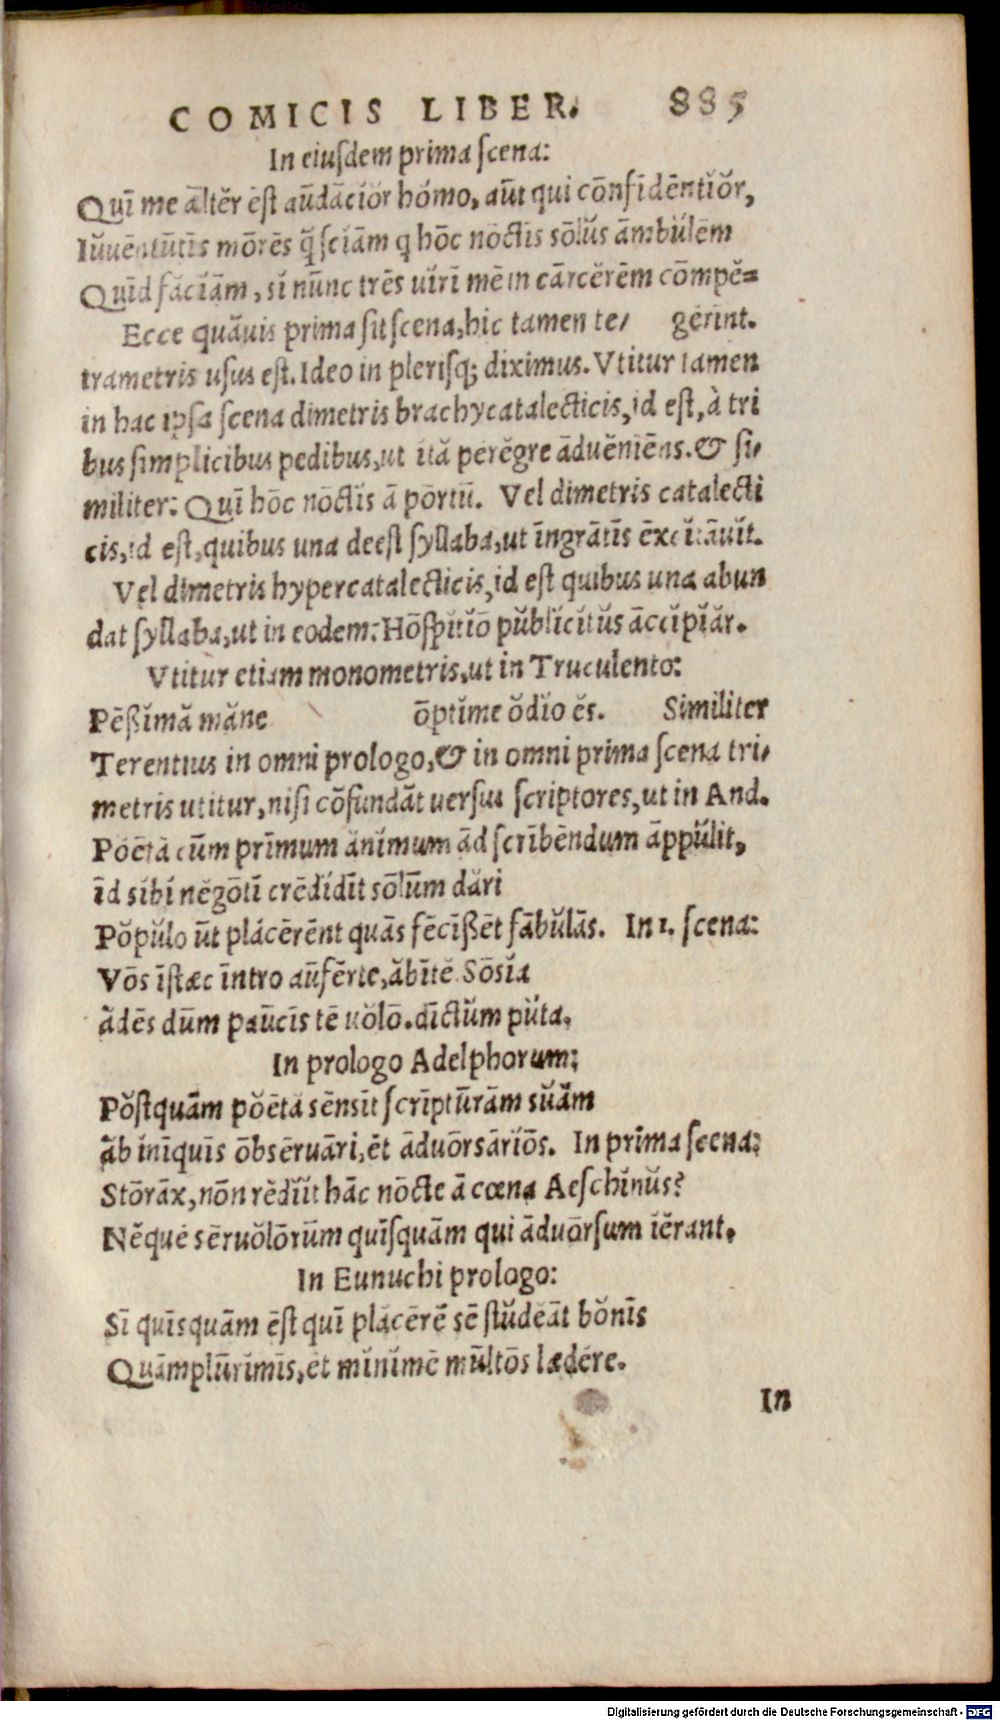 COMICIS LIBER. 885
In eiuſdem prima ſcena:
Quī me āltĕr ēſt aūdācĭŏr hŏmo, aūt qui cōnfīdēntĭŏr,
Iŭuēntūtīs mōrēs q̄ ſcĭām q hōc nōctĭs sōlŭs āmbŭlēm
Quīd făcĭām, ſi nūnc trēs uĭrī mē in cārcĕrēm cōmpĕ=
Ecce quāuis prima ſit ſcena, hic tamen te/ gĕrĭnt.
trametris uſus eſt. Ideo in pleriſq; diximus. Vtitur tamen
in hac ipſa ſcena dimetris brachycatalecticis, id eſt, à tri
bus ſimplicibus pedibus, ut ĭtă pĕrĕgre ādŭēnĭēns. & ſi/
militer: Quī hōc nōctĭs ā pōrtū. Vel dimetris catalecti
cis, id eſt, quibus una deeſt ſyllaba, ut īngrātīs ēxcĭtāuĭt.
Vel dimetris hypercatalecticis, id eſt quibus una abun
dat ſyllaba, ut in eodem: Hōſpĭtĭō pŭblĭcĭtŭs āccĭpĭăr.
Vtitur etiam monometris, ut in Truculento:
Pēßĭmă măne ōptĭme ŏdio ĕs. Similiter
Terentius in omni prologo, & in omni prima ſcena tri/
metris utitur, niſi cōfundāt uerſus ſcriptores, ut in And.
Pŏētă cūm prīmum ănĭmum ād ſcrībēndum āppŭlit,
īd sĭbĭ nĕgōtī crēdĭdīt sōlūm dări
Pŏpŭlo ūt plăcērēnt quās fēcīßēt fābŭlās. In 1. ſcena:
Vōs īſtæc īntro aūfērte, ăbītĕ Sōsĭa
ădēs dūm paūcīs tē uŏlō. dīctŭm pŭta.
In prologo Adelphorum:
Pŏſtquām pŏētă sēnsīt ſcrīptūrām sŭām
āb ĭnīquīs ōbsēruāri, ēt āduōrsārĭōs. In prīma ſcena:
Stōrāx, nōn rĕdĭit hāc nōcte ā cœna Aeſchĭnŭs?
Nĕquĕ sēruŏlōrūm quīſquām qui āduōrſum ĭērant.
In Eunuchi prologo:
Sī quīsquām ēſt quī plăcērē sē ſtŭdĕāt bŏnīs
Quāmplūrĭmīs, ĕt mĭnĭmē mūltōs lædĕre.
In
Digitalisierung gefördert durch die Deutsche Forschungsgemeinschaft - DFG